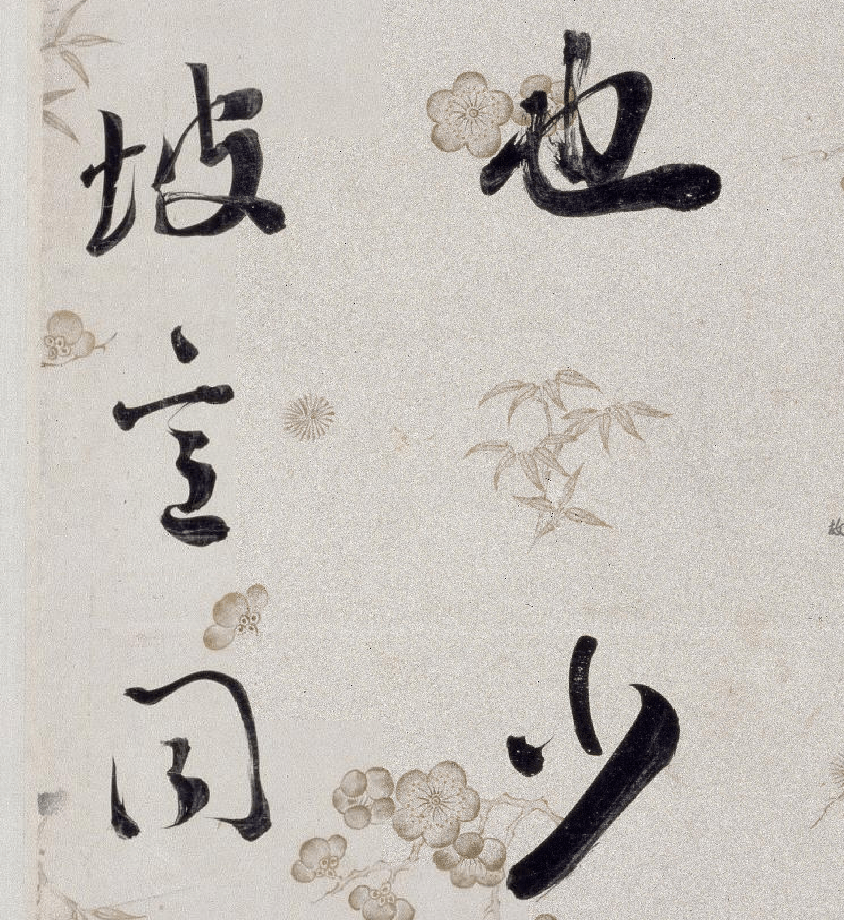 也少
坡言同